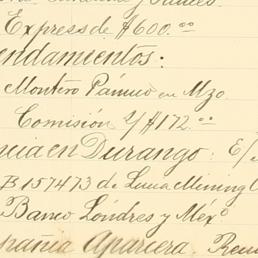 Express de $600.00
endamientos:
Montero Pánuco en Mzo.
Comisión s/ $172.00
encia en Durango: E/
B 157473 de Luna Mining C
Banco Londres y Méxo
pañia Aparcera. Rem